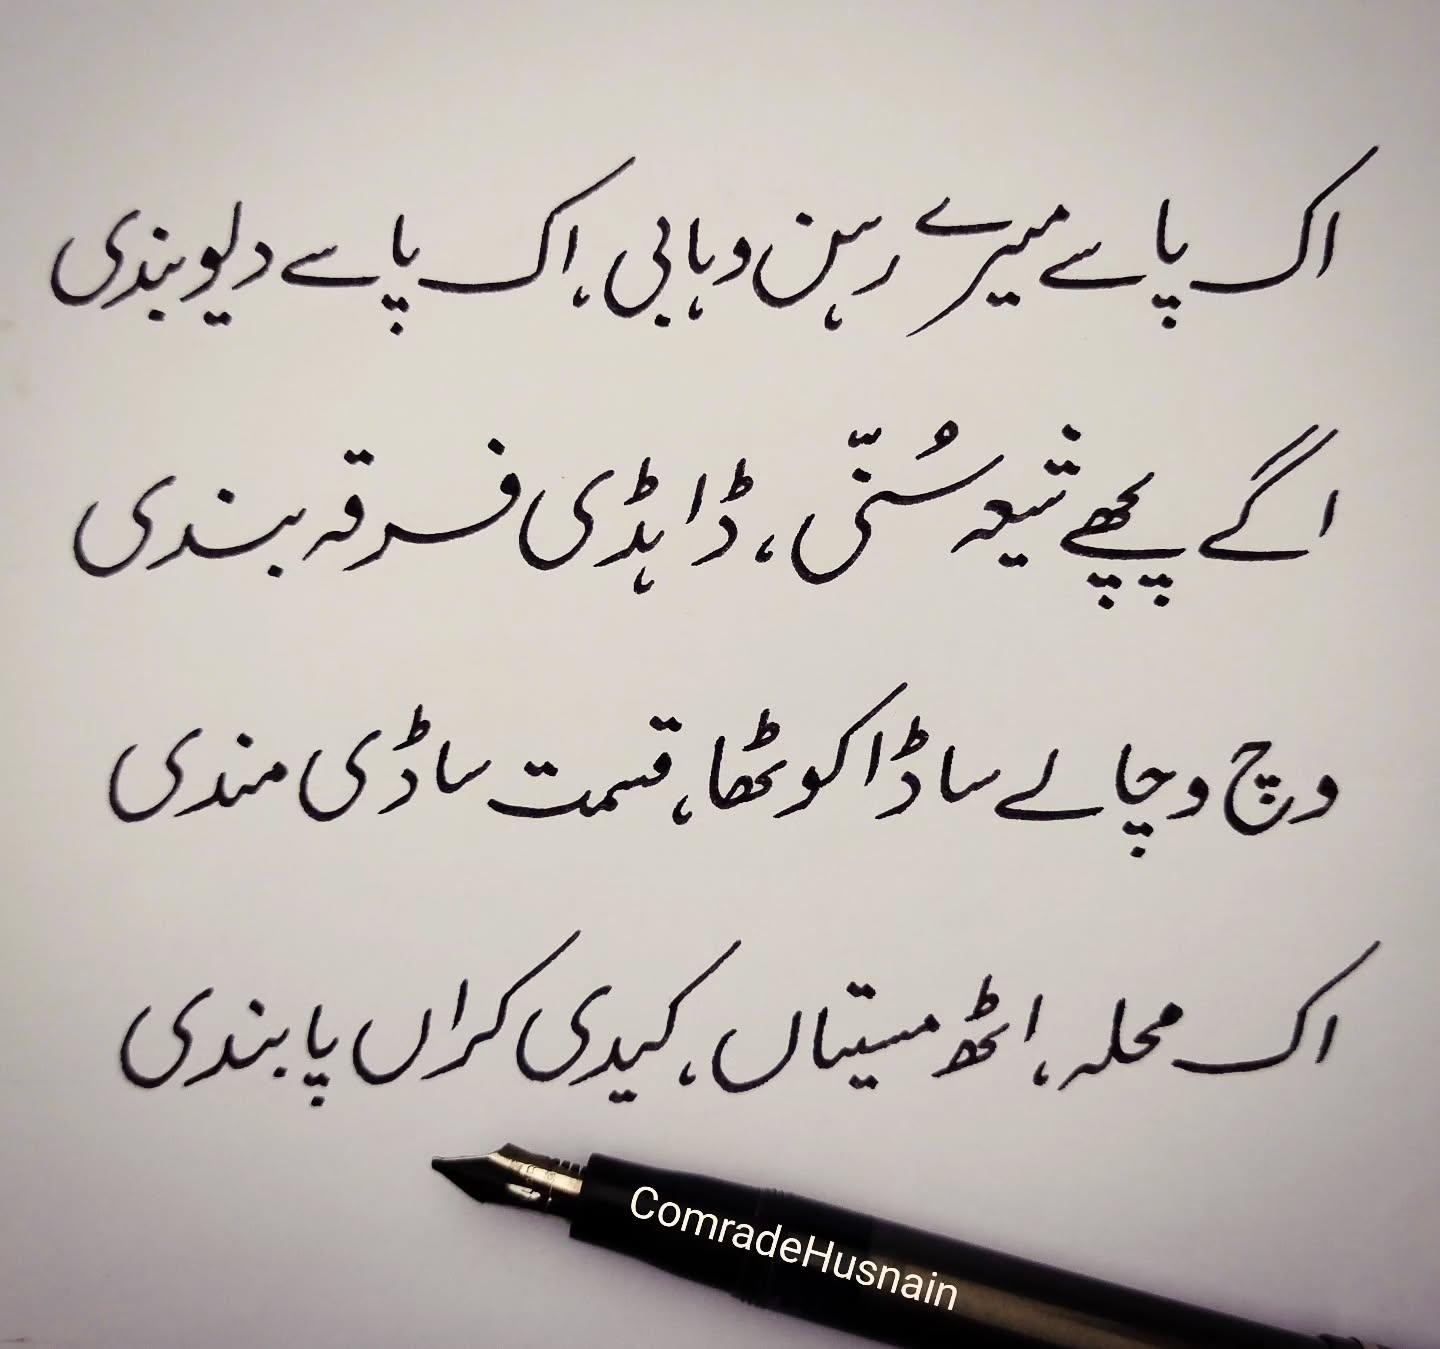 اک پاسے میرے رہن وہابی، اک پاسے دیوبندی
اگے پچھے شیعہ سُنّی، ڈاہڈی فرقہ بندی
وچ وچالے ساڈا کوٹھا، قسمت ساڈی مندی
اک محلہ، اٹھ مسیتاں، کیدی کراں پابندی
ComradeHusnain